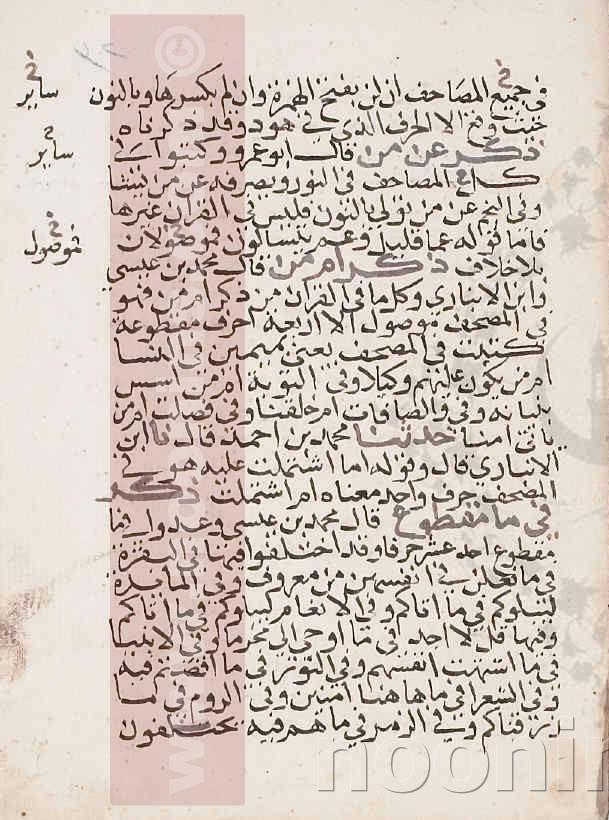 في جميع المصاحف ان لن بفتح الهمزة وان لم بكسرها وبالنون
حيث وقع الا الحرف الذي في هود وقد ذكرناه
ذكر عن من قال ابو عمرو وكتبوا في
كل المصاحف في النور ويصرفه عن من يشا
وفي النجم عن من تولى بالنون فليس في القران غيرها
فاما قوله عما قليل وعم يتسالون فموصولات
بلا خلاف ذكر ام من قال محمد بن عيسى
وابن الانباري وكل ما في القران من ذكر امن فهو
في المصحف موصول الا اربعة احرف مقطوعة
كتبت في المصحف يعني بميمين في النسا
ام من يكون عليهم وكيلا وفي التوبة ام من اسس
بنيانه وفي والصافات ام من خلقنا وفي فصلت ام من
ياتي امنا حدثنا محمد بن احمد قال نا ابن
الانباري قال وقوله اما اشتملت عليه هو في
المصحف حرف واحد معناه ام اشتملت ذكر
في ما مقطوع قال محمد بن عيسى وعدوا في ما
مقطوع احد عشر حرفا وقد اختلفوا فيها في البقرة
في ما فعلن في انفسهن من معروف وفي المايدة
ليبلوكم في ما اتاكم وفي الانعام ليبلوكم في ما اتاكم
وفيها قل لا اجد في ما اوحي الي محرما وفي الانبيا
في ما اشتهت انفسهم وفي النور في ما افضتم فيه
وفي الشعرا في ما هاهنا امنين وفي الروم في ما
رزقناكم وفي الزمر في ما هم فيه يختلفون
خ
ساير
خ
ساير
خ
موصول
noonin